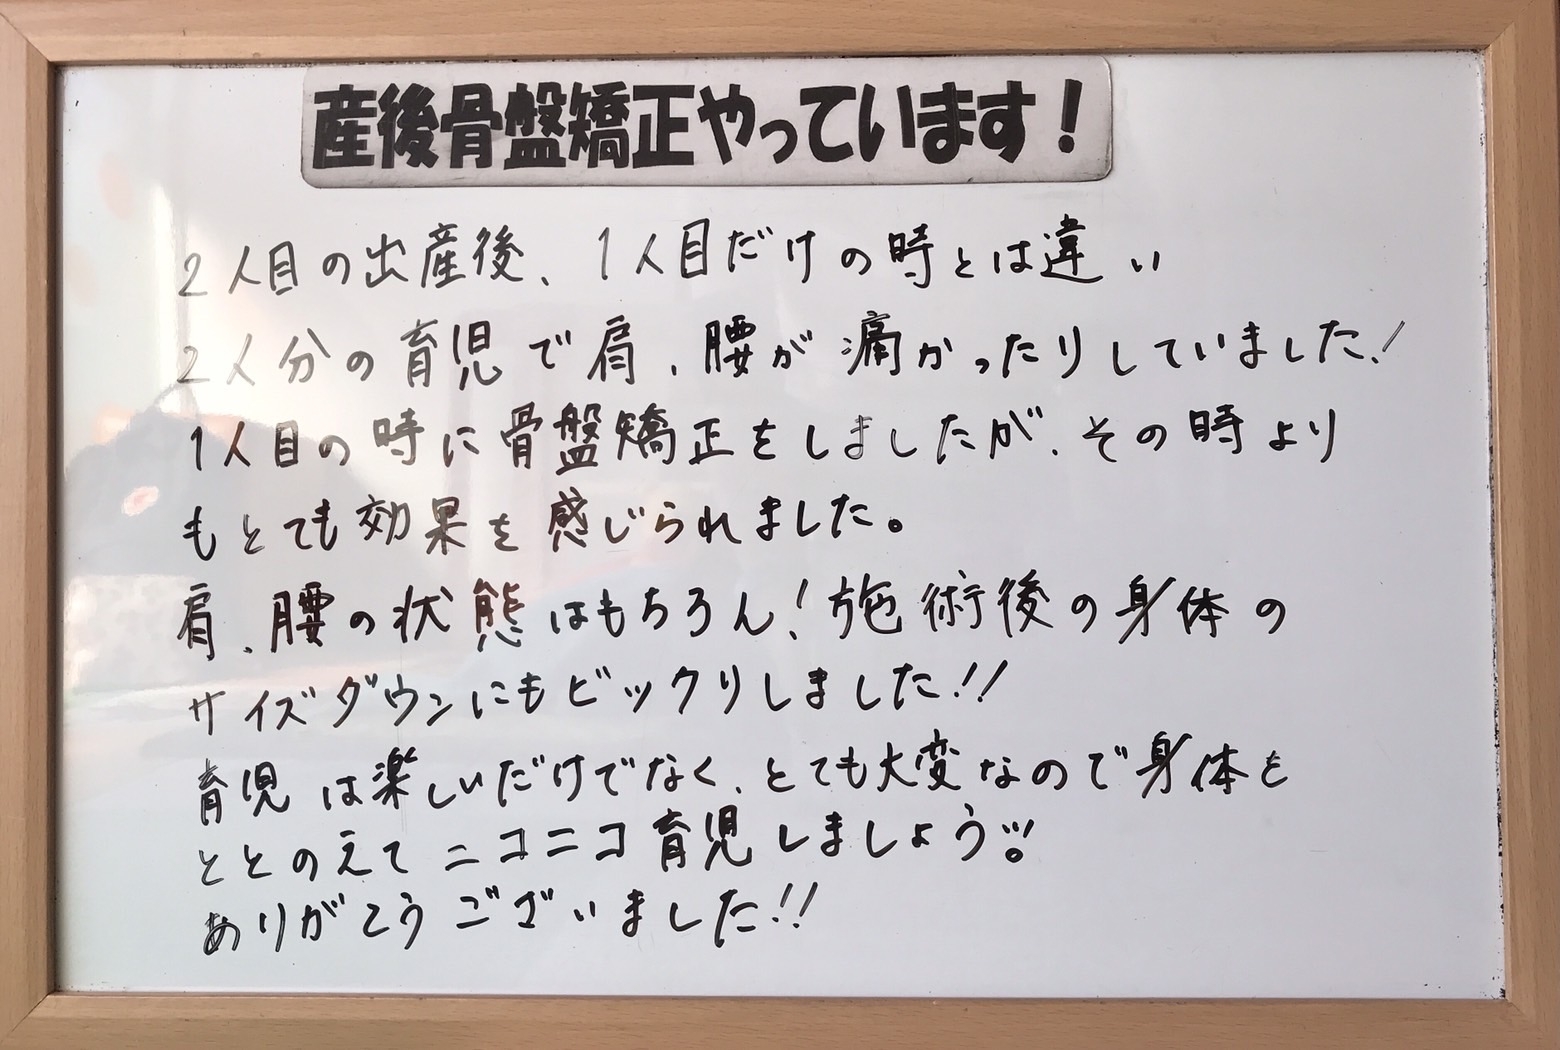 産後骨盤矯正やっています！
2人目の出産後、1人目だけの時とは違い
2人分の育児で肩、腰が痛かったりしていました！
1人目の時に骨盤矯正をしましたが、その時より
もとても効果を感じられました。
肩、腰の状態はもちろん！施術後の身体の
サイズダウンにもビックリしました!!
育児は楽しいだけでなく、とても大変なので身体を
ととのえてニコニコ育児しましょう!!
ありがとうございました!!